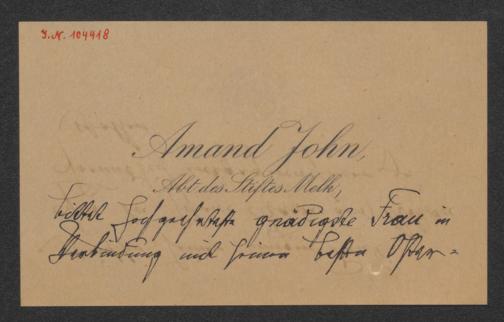 J.N. 104918
Amand John,
Abt des Stiftes Melk,
bittet hochgeehrteste gnädigste Frau in
Verbindung mit seinen besten Oster-